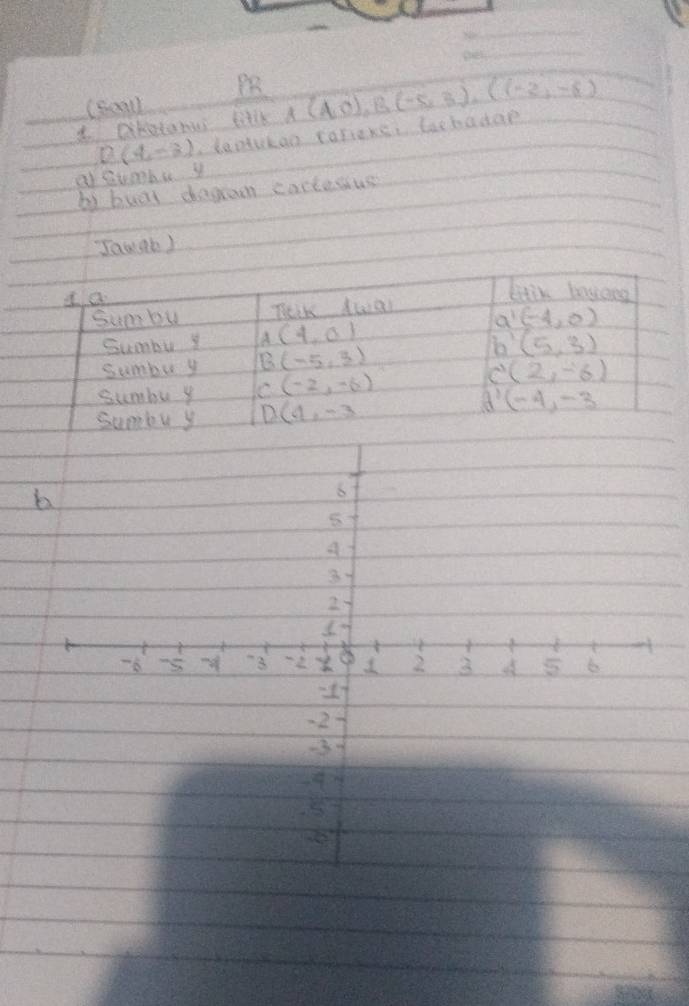 PR
(Soal)
1. Diketahui titik A (4,0), B (-5, 3), C(-2, -6)
D(4,-3), tentukan terhadap
a) Sumbu y
b) buat diagram cartesius
Jawab)
1 a
Sumbu Titik Awal titik bayang
Sumbu y A(4,0) a'(-4,0)
Sumbu y B(-5,3) b'(5,3)
Sumbu y C(-2,-6) c'(2,-6)
Sumbu y D(4,-3 d'(-4,-3
b
6
5
4
3
2
1
-6 -5 -4 -3 -2 -1 0 1 2 3 4 5 6
-1
-2
-3
-4
-5
-6